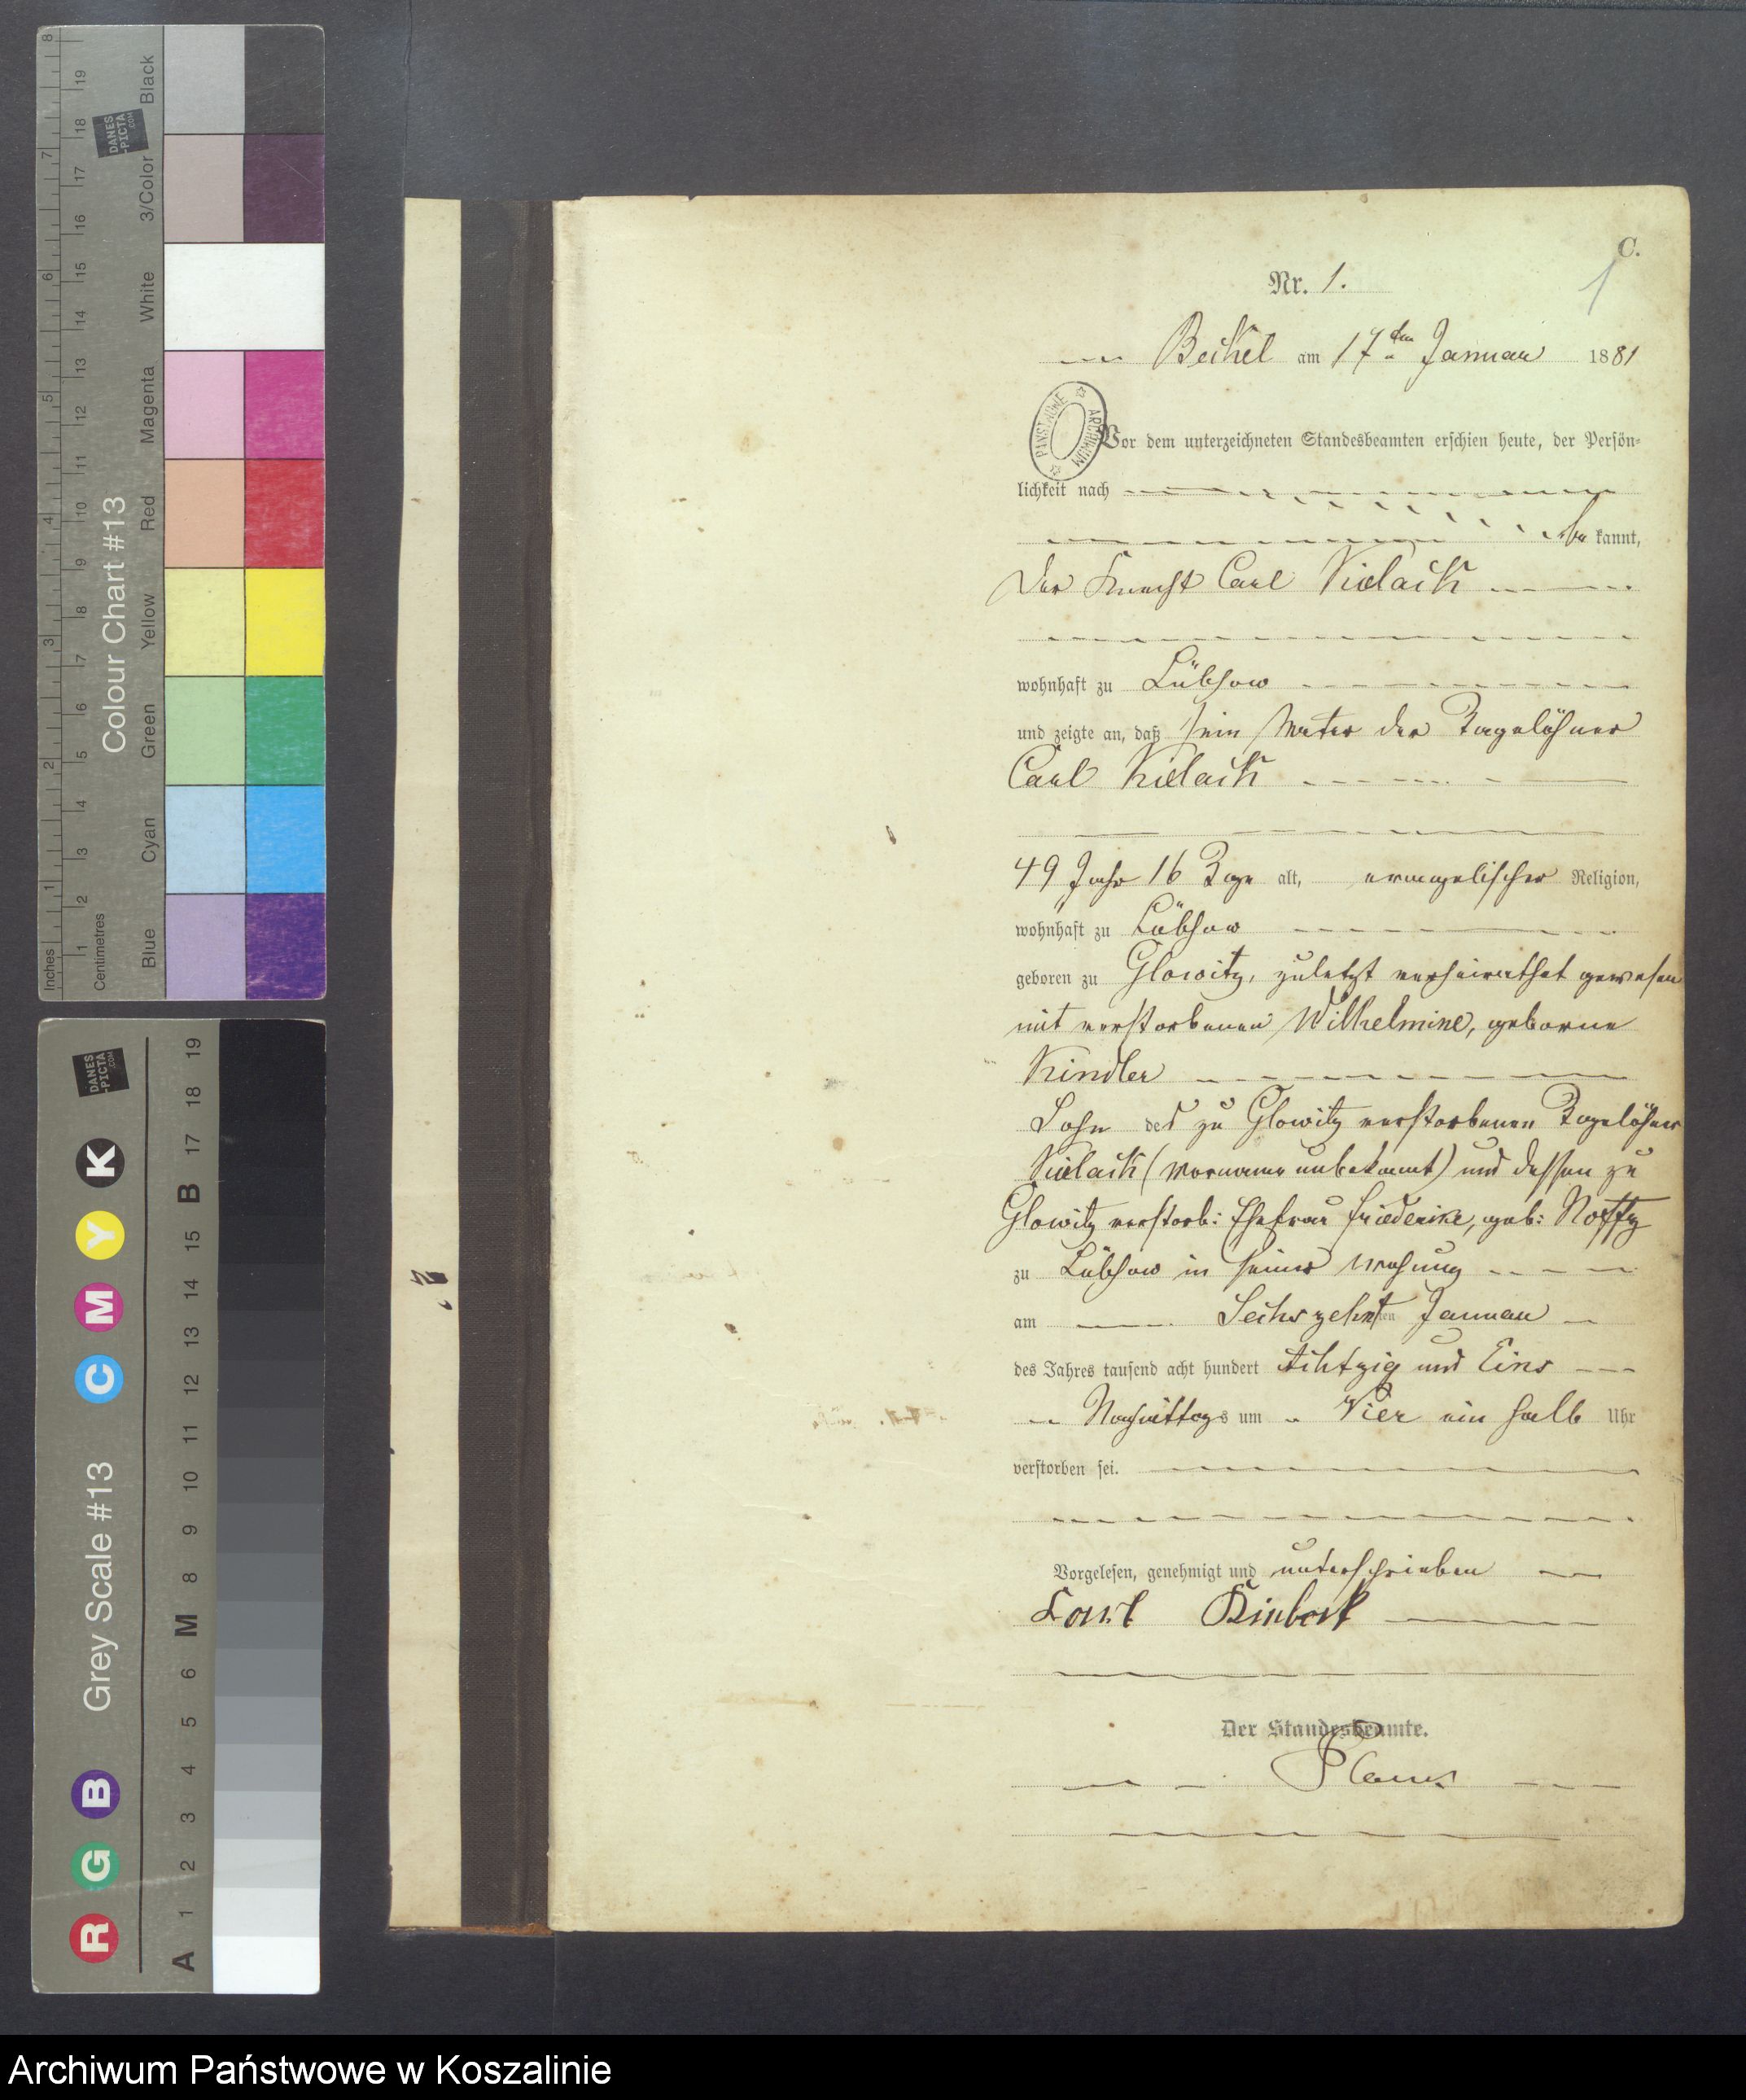 C.
1
Nr. 1.
Beckel am 17ten Januar 1881
ARCHIWUM PAŃSTWOWE
Vor dem unterzeichneten Standesbeamten erschien heute, der Persön-
lichkeit nach
bekannt,
der Knecht Carl
wohnhaft zu Lübchow
und zeigte an, daß sein Vater der Tagelöhner
Carl
49 Jahr 16 Tage alt, evangelischer Religion,
wohnhaft zu Lübchow
geboren zu Glowitz, zuletzt verheirathet gewesen
mit verstorbenen Wilhelmine, geborne
Kindler
Sohn des zu Glowitz verstorbenen Tagelöhner
(Vorname unbekannt) und dessen zu
Glowitz verstorb: Ehefrau Friederike, geb:
zu Lübchow in seiner Wohnung
am Sechszehnten Januar
des Jahres tausend acht hundert Achtzig und Eins
Nachmittags um Vier ein halb Uhr
verstorben sei.
Vorgelesen, genehmigt und unterschrieben
Der Standesbeamte.
Inches 1 2 3 4 5 6 7 8
Centimetres 1 2 3 4 5 6 7 8 9 10 11 12 13 14 15 16 17 18 19
Colour Chart #13
Blue Cyan Green Yellow Red Magenta White 3/Color Black
DANES
-PICTA
.COM
Grey Scale #13
R G B C M Y K
A 1 2 3 4 5 6 M 8 9 10 11 12 13 14 15 B 17 18 19
DANES
-PICTA
.COM
Archiwum Państwowe w Koszalinie